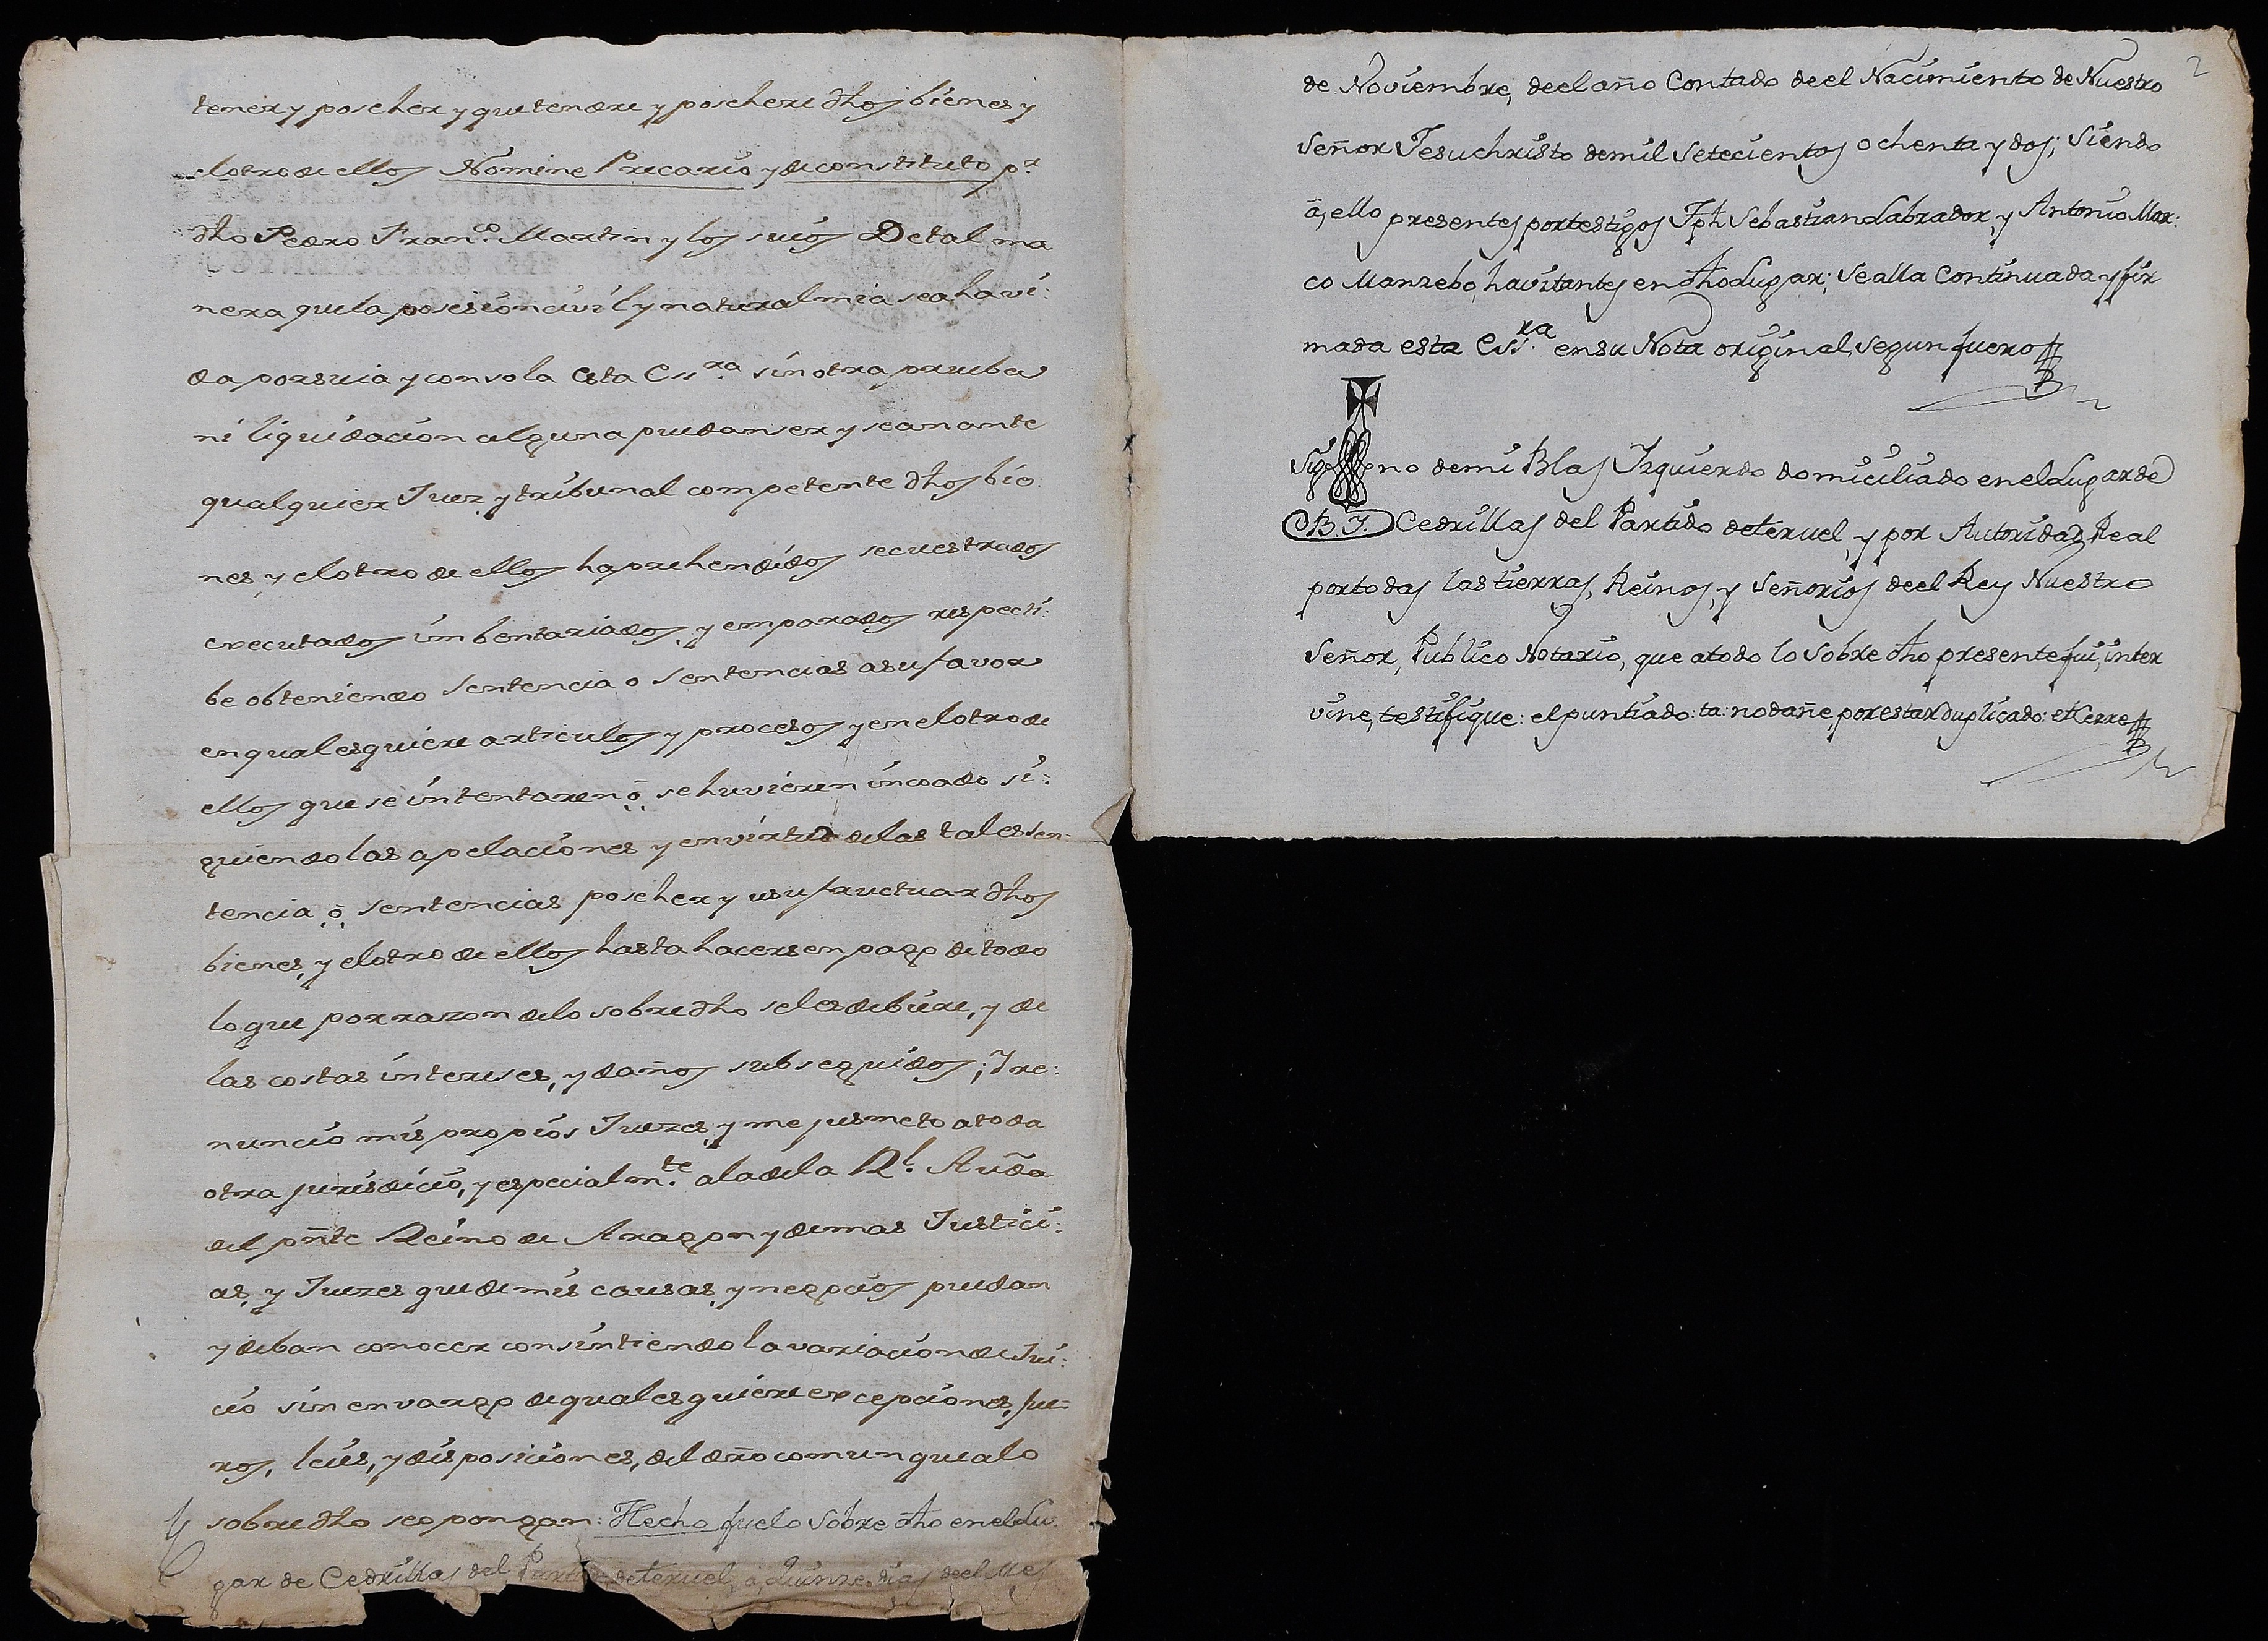 tener y poseher y que tendre y posehere dhos bienes y
el otro de ellos Nomine Precario y de constituto p.r
dho Pedro Fran.co Martin y los suios De tal ma
nera que la posesion civil y natural mia sea havi:
da por suia y con sola esta Ess.ra sin otra prueba
ni liquidacion alguna puedan ser y sean ante
qualquier Juez y tribunal competente dhos bie:
nes, y el otro de ellos haprehendidos secuestrados
executados imbentariados, y emparados respecti:
be obteniendo sentencia o sentencias a su favor
en qualesquiere articulos y procesos y en el otro de
ellos que se intentaren ô se huvieren incoado si:
guiendo las apelaciones y en virtud de las tales sen:
tencia ô sentencias poseher y usufructuar dhos
bienes, y el otro de ellos hasta hacersen pago de todo
lo que por razon de lo sobre dho se les debiere, y de
las costas intereses, y daños subseguidos; Y re:
nuncio mis propios Juezes, y me jusmeto a toda
otra jurisdicio, y especialm.te a la de la Rl. Auda
del pñte Reino de Aragon y demas Justici:
as, y Juezes que de mis causas, y negocios puedan
y deban conocer consintiendo la variacion de Jui:
cio sin envargo de qualesquiere excepciones, fue=
ros, leies, y disposiciones, del dro comun que a lo
sobre dho se opongan: Hecho fue lo sobre dho en el Lu:
gar de Cedrillas del Partido de Teruel, a, Quinze dias de el Mes
2
de Noviembre, de el año Contado de el Nacimiento de Nuestro
Señor Jesuchristo de mil Setecientos ochenta y dos; Siendo
â, ello presentes por testigos Jph Sebastian Labrador, y Antonio Mar:
co Manzebo, havitantes en dho Lugar; Se alla Continuada y fir
mada esta Ess.ra en su Nota original, segun fuero
Sig no de mi Blas Izquierdo domiciliado en el Lugar de
B. I. Cedrillas del Partido de Teruel, y por Autoridad Real
por todas las tierras, Reinos, y Señorios de el Rey Nuestro
Señor, Publico Notario, que a todo lo sobre dho presente fui, inter
vine, testifique: el puntiado: ta: no dañe, por estar duplicado: et Cerre